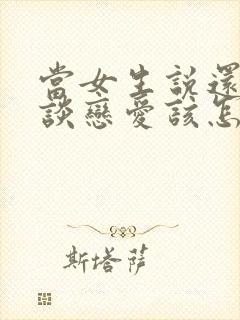 當女生說還
談戀愛該怎
斯塔薩